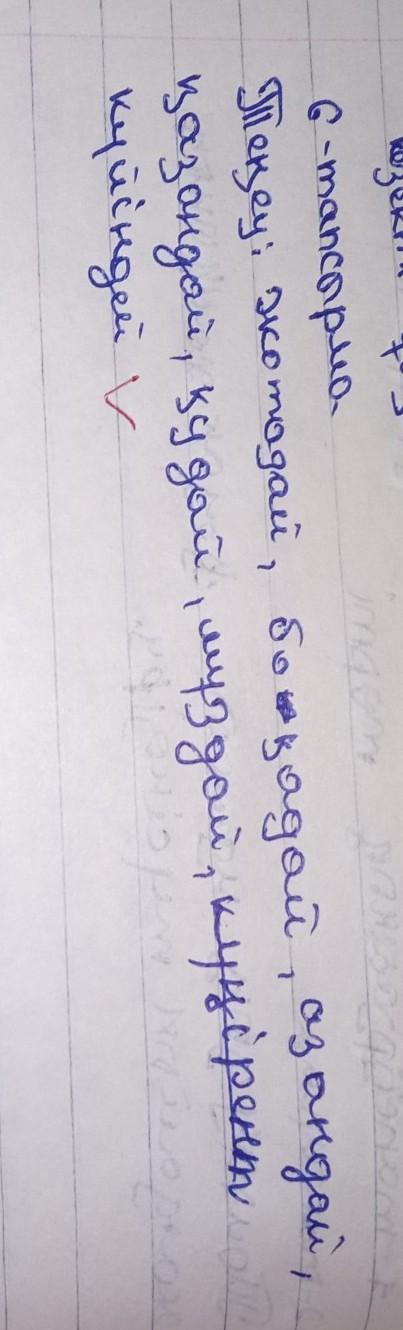 6-тапсырма.
Теңеу: жотадай, боқадай, азандай,
қазандай, қудай, мұздай, күңірент
күйіндей